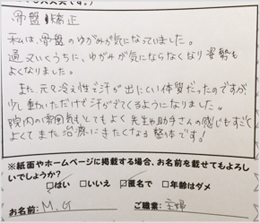 骨盤矯正
私は、骨盤のゆがみが気になっていました。
通っていくうちに、ゆがみが気にならなくなり姿勢も
よくなりました。
また、元々冷え性で汗が出にくい体質だったのですが、
少し動いただけで汗がでてくるようになりました。
院内の雰囲気もとてもよく先生や助手さんの感じもすごく
よくてまた治療にきたくなる整体です!
※紙面やホームページに掲載する場合、お名前を載せてもよろし
いでしょうか?
□はい □いいえ ☑匿名で □年齢はダメ
お名前: M.G ご職業: 主婦